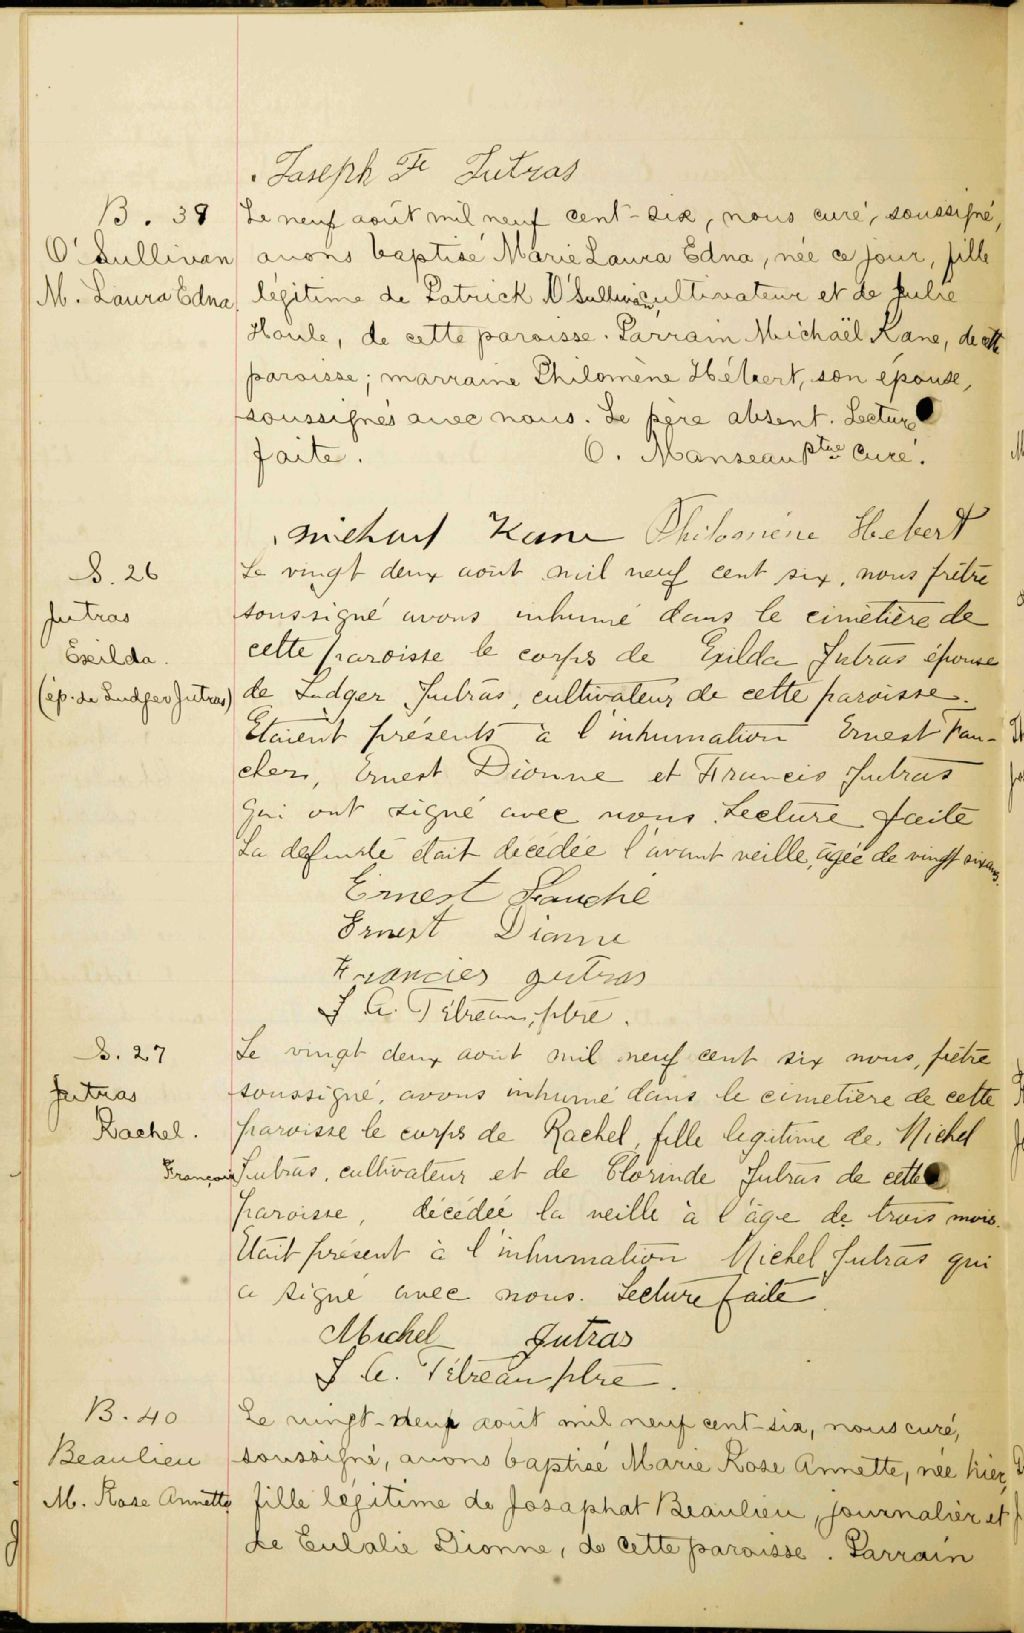 Joseph Fr Jutras
B. 39
O'Sullivan
M. Laura Edna.
Le neuf août mil neuf cent-six, nous curé, soussigné,
avons baptisé Marie Laura Edna, née ce jour, fille
légitime de Patrick O'Sullivan cultivateur et de Julie
Houle, de cette paroisse. Parrain Michaël Kane, de cette
paroisse; marraine Philomène Hébert, son épouse,
soussignés avec nous. Le père absent. Lecture
faite. O. Manseau ptre curé.
Michael Kane Philomène Hebert
S. 26
Jutras
Exilda.
(ép. de Ludger Jutras)
Le vingt deux août mil neuf cent six, nous prêtre
soussigné avons inhumé dans le cimetière de
cette paroisse le corps de Exilda Jutras épouse
de Ludger Jutras, cultivateur de cette paroisse.
Etaient présents à l'inhumation Ernest Fau-
cher, Ernest Dionne et Francis Jutras
qui ont signé avec nous. Lecture faite
La defunte était décédée l'avant veille, âgée de vingt six ans.
Ernest Fauché
Ernest Dionne
Francies Jutras
J A. Tétreau, ptre.
S. 27
Jutras
Rachel.
Le vingt deux août mil neuf cent six nous, prêtre
soussigné, avons inhumé dans le cimetière de cette
paroisse le corps de Rachel, fille legitime de Michel
François Jutras, cultivateur et de Clorinde Jutras de cette
paroisse, décédée la veille à l'âge de trois mois.
Etait présent à l'inhumation Michel Jutras qui
a signé avec nous. Lecture faite
Michel Jutras
J A. Tétreau ptre.
B. 40
Beaulieu
M. Rose Annette
Le vingt-neuf août mil neuf cent-six, nous curé,
soussigné, avons baptisé Marie Rose Annette, née hier,
fille légitime de Josaphat Beaulieu, journalier et
de Eulalie Dionne, de cette paroisse. Parrain